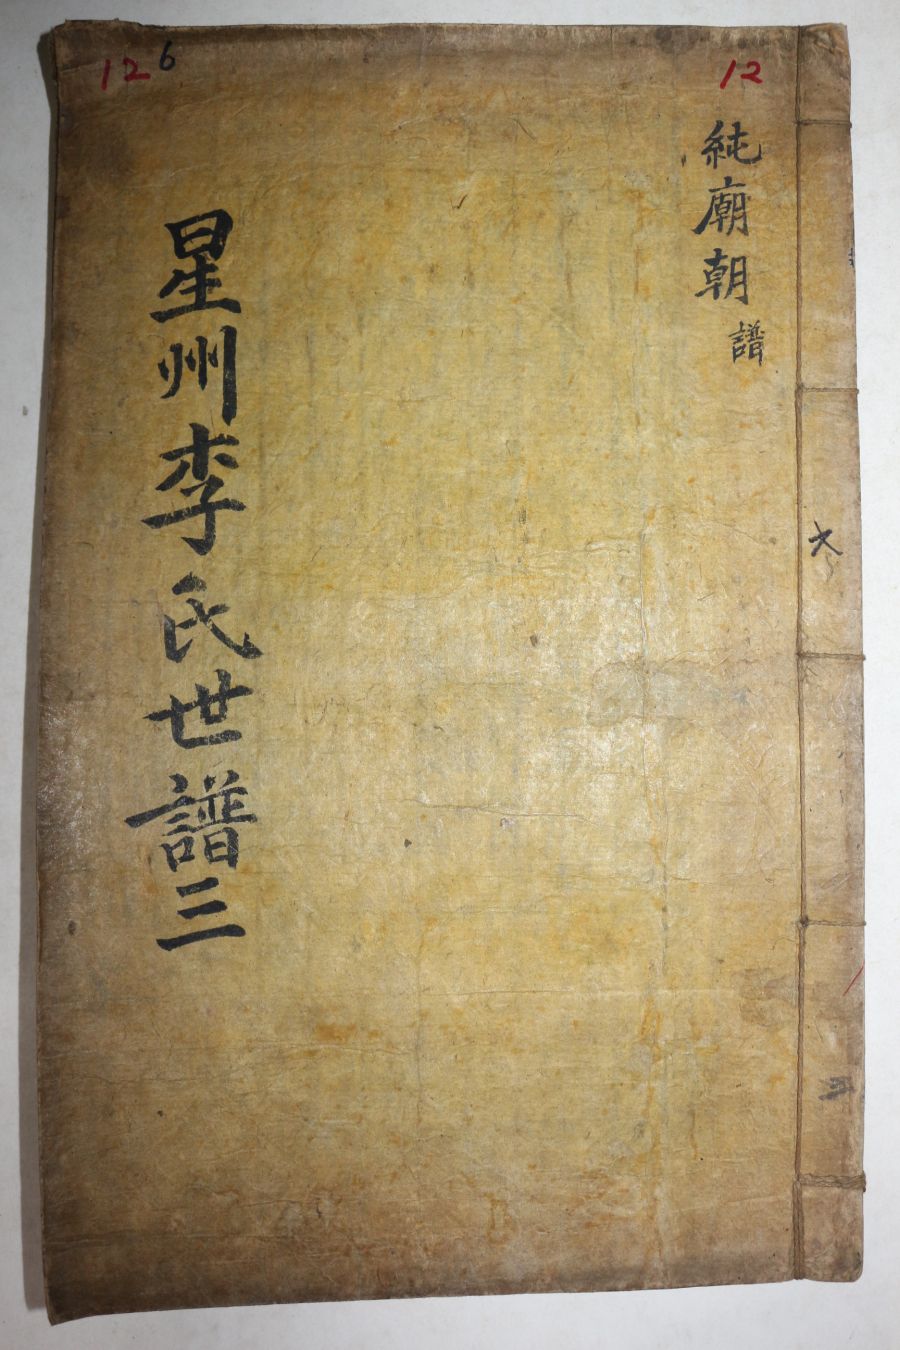 12
純廟朝
譜
126
星州李氏世譜三
三